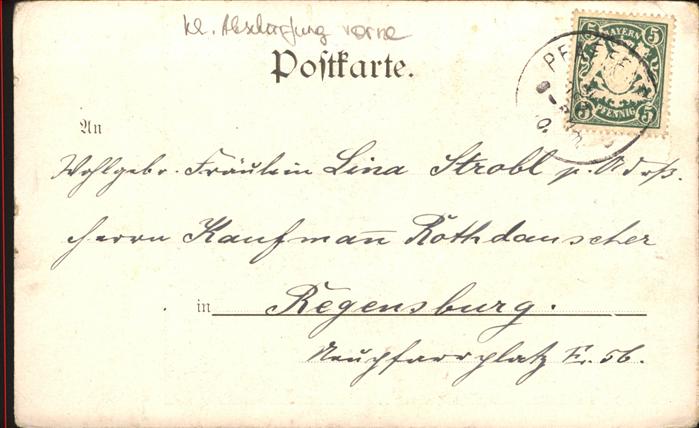 kl. Abschürfung vorne
Postkarte.
5 BAYERN 5
5 PFENNIG 5
An
Wohlgebr. Fräulein Lina Strobl p. Adrß.
Herrn Kaufmann Rothdauscher
in Regensburg.
Neupfarrplatz E. 56.